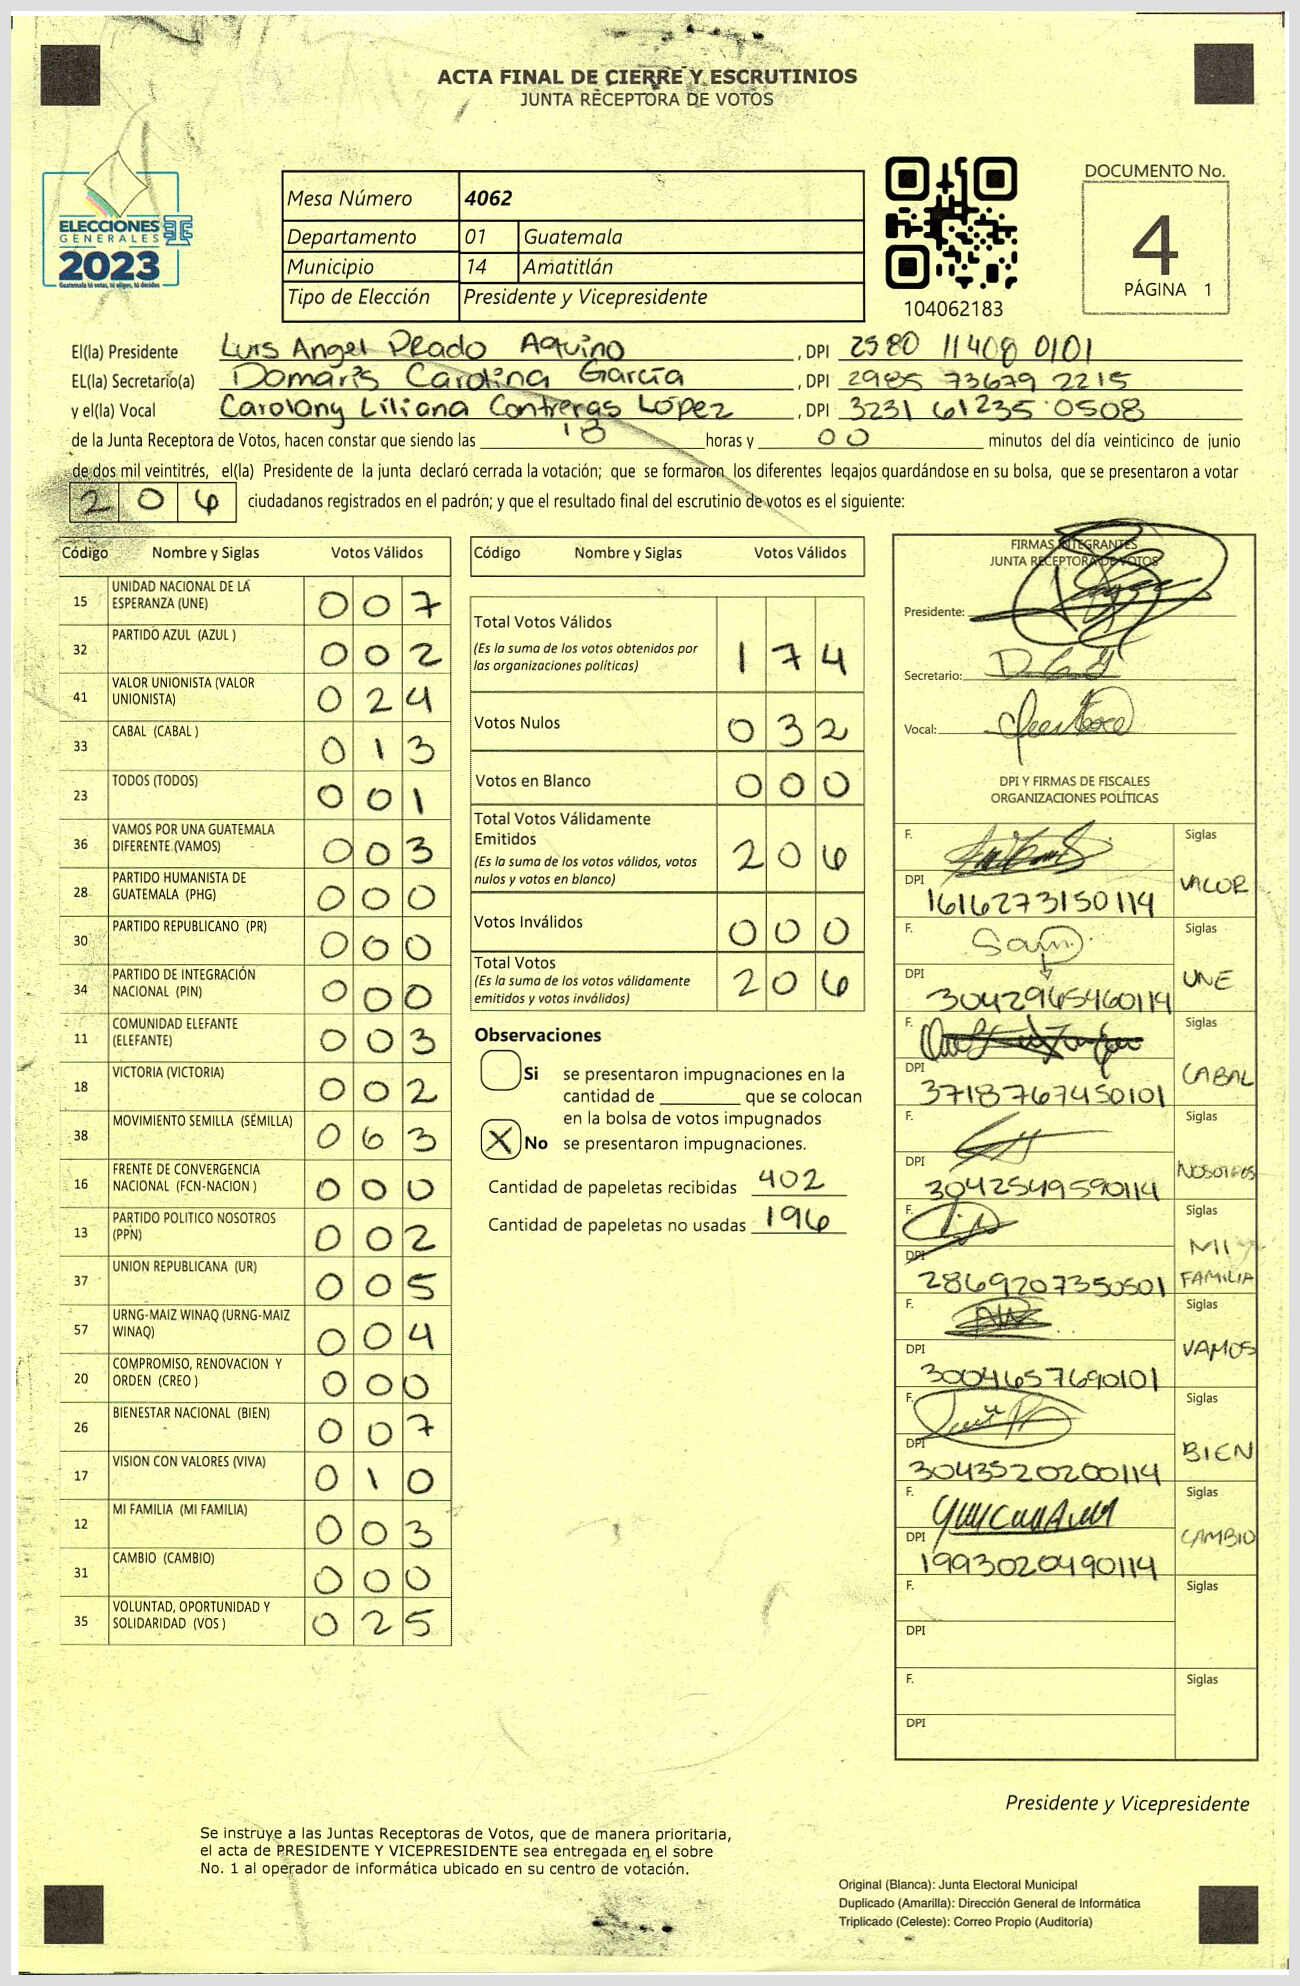 ACTA FINAL DE CIERRE Y ESCRUTINIOS
JUNTA RECEPTORA DE VOTOS
ELECCIONES
GENERALES
2023
Guatemala tú votas, tú eliges, tú decides
Mesa Número 4062
Departamento 01 Guatemala
Municipio 14 Amatitlán
Tipo de Elección Presidente y Vicepresidente
104062183
DOCUMENTO No.
4
PÁGINA 1
El(la) Presidente Luis Angel Prado Aquino, DPI 2580 11408 0101
EL(la) Secretario(a) Damaris Carolina García, DPI 2985 73679 2215
y el(la) Vocal Carolany Liliana Contreras López, DPI 3231 61235 0508
de la Junta Receptora de Votos, hacen constar que siendo las 18 horas y 00 minutos del día veinticinco de junio
de dos mil veintitrés, el(la) Presidente de la junta declaró cerrada la votación; que se formaron los diferentes legajos guardándose en su bolsa, que se presentaron a votar
206 ciudadanos registrados en el padrón; y que el resultado final del escrutinio de votos es el siguiente:
Código Nombre y Siglas Votos Válidos
15 UNIDAD NACIONAL DE LA ESPERANZA (UNE) 007
32 PARTIDO AZUL (AZUL ) 002
41 VALOR UNIONISTA (VALOR UNIONISTA) 024
33 CABAL (CABAL ) 013
23 TODOS (TODOS) 001
36 VAMOS POR UNA GUATEMALA DIFERENTE (VAMOS) 003
28 PARTIDO HUMANISTA DE GUATEMALA (PHG) 000
30 PARTIDO REPUBLICANO (PR) 000
34 PARTIDO DE INTEGRACIÓN NACIONAL (PIN) 000
11 COMUNIDAD ELEFANTE (ELEFANTE) 003
18 VICTORIA (VICTORIA) 002
38 MOVIMIENTO SEMILLA (SEMILLA) 063
16 FRENTE DE CONVERGENCIA NACIONAL (FCN-NACION ) 000
13 PARTIDO POLITICO NOSOTROS (PPN) 002
37 UNION REPUBLICANA (UR) 005
57 URNG-MAIZ WINAQ (URNG-MAIZ WINAQ) 004
20 COMPROMISO, RENOVACION Y ORDEN (CREO ) 000
26 BIENESTAR NACIONAL (BIEN) 007
17 VISION CON VALORES (VIVA) 010
12 MI FAMILIA (MI FAMILIA) 003
31 CAMBIO (CAMBIO) 000
35 VOLUNTAD, OPORTUNIDAD Y SOLIDARIDAD (VOS ) 025
Código Nombre y Siglas Votos Válidos
Total Votos Válidos 174
(Es la suma de los votos obtenidos por
las organizaciones políticas)
Votos Nulos 032
Votos en Blanco 000
Total Votos Válidamente
Emitidos 206
(Es la suma de los votos válidos, votos
nulos y votos en blanco)
Votos Inválidos 000
Total Votos 206
(Es la suma de los votos válidamente
emitidos y votos inválidos)
Observaciones
Si se presentaron impugnaciones en la
cantidad de ________ que se colocan
en la bolsa de votos impugnados
X No se presentaron impugnaciones.
Cantidad de papeletas recibidas 402
Cantidad de papeletas no usadas 196
FIRMAS INTEGRANTES
JUNTA RECEPTORA DE VOTOS
Presidente:
Secretario:
Vocal:
DPI Y FIRMAS DE FISCALES
ORGANIZACIONES POLÍTICAS
F. Siglas
DPI 1616273150114 VALOR
F. Siglas
DPI 3042965460114 UNE
F. Siglas
DPI 3718767450101 CABAL
F. Siglas
DPI 3042549590114 NOSOTROS
F. Siglas
DPI 2869207350501 MI FAMILIA
F. Siglas
DPI 3004657690101 VAMOS
F. Siglas
DPI 3043520200114 BIEN
F. Siglas
DPI 1993020490114 CAMBIO
F. Siglas
DPI
F. Siglas
DPI
Presidente y Vicepresidente
Se instruye a las Juntas Receptoras de Votos, que de manera prioritaria,
el acta de PRESIDENTE Y VICEPRESIDENTE sea entregada en el sobre
No. 1 al operador de informática ubicado en su centro de votación.
Original (Blanca): Junta Electoral Municipal
Duplicado (Amarilla): Dirección General de Informática
Triplicado (Celeste): Correo Propio (Auditoría)